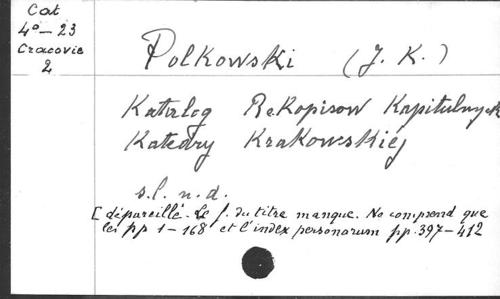 Cat
4° — 23
Cracovie
2
Polkowski (J. K.)
Katalog Rekopisow Kapitulnych
Katedry Krakowskiej
s.l. n.d.
[dépareillé. Le f. du titre manque. Ne comprend que
les pp 1-168 et l'index personarum pp. 397-412